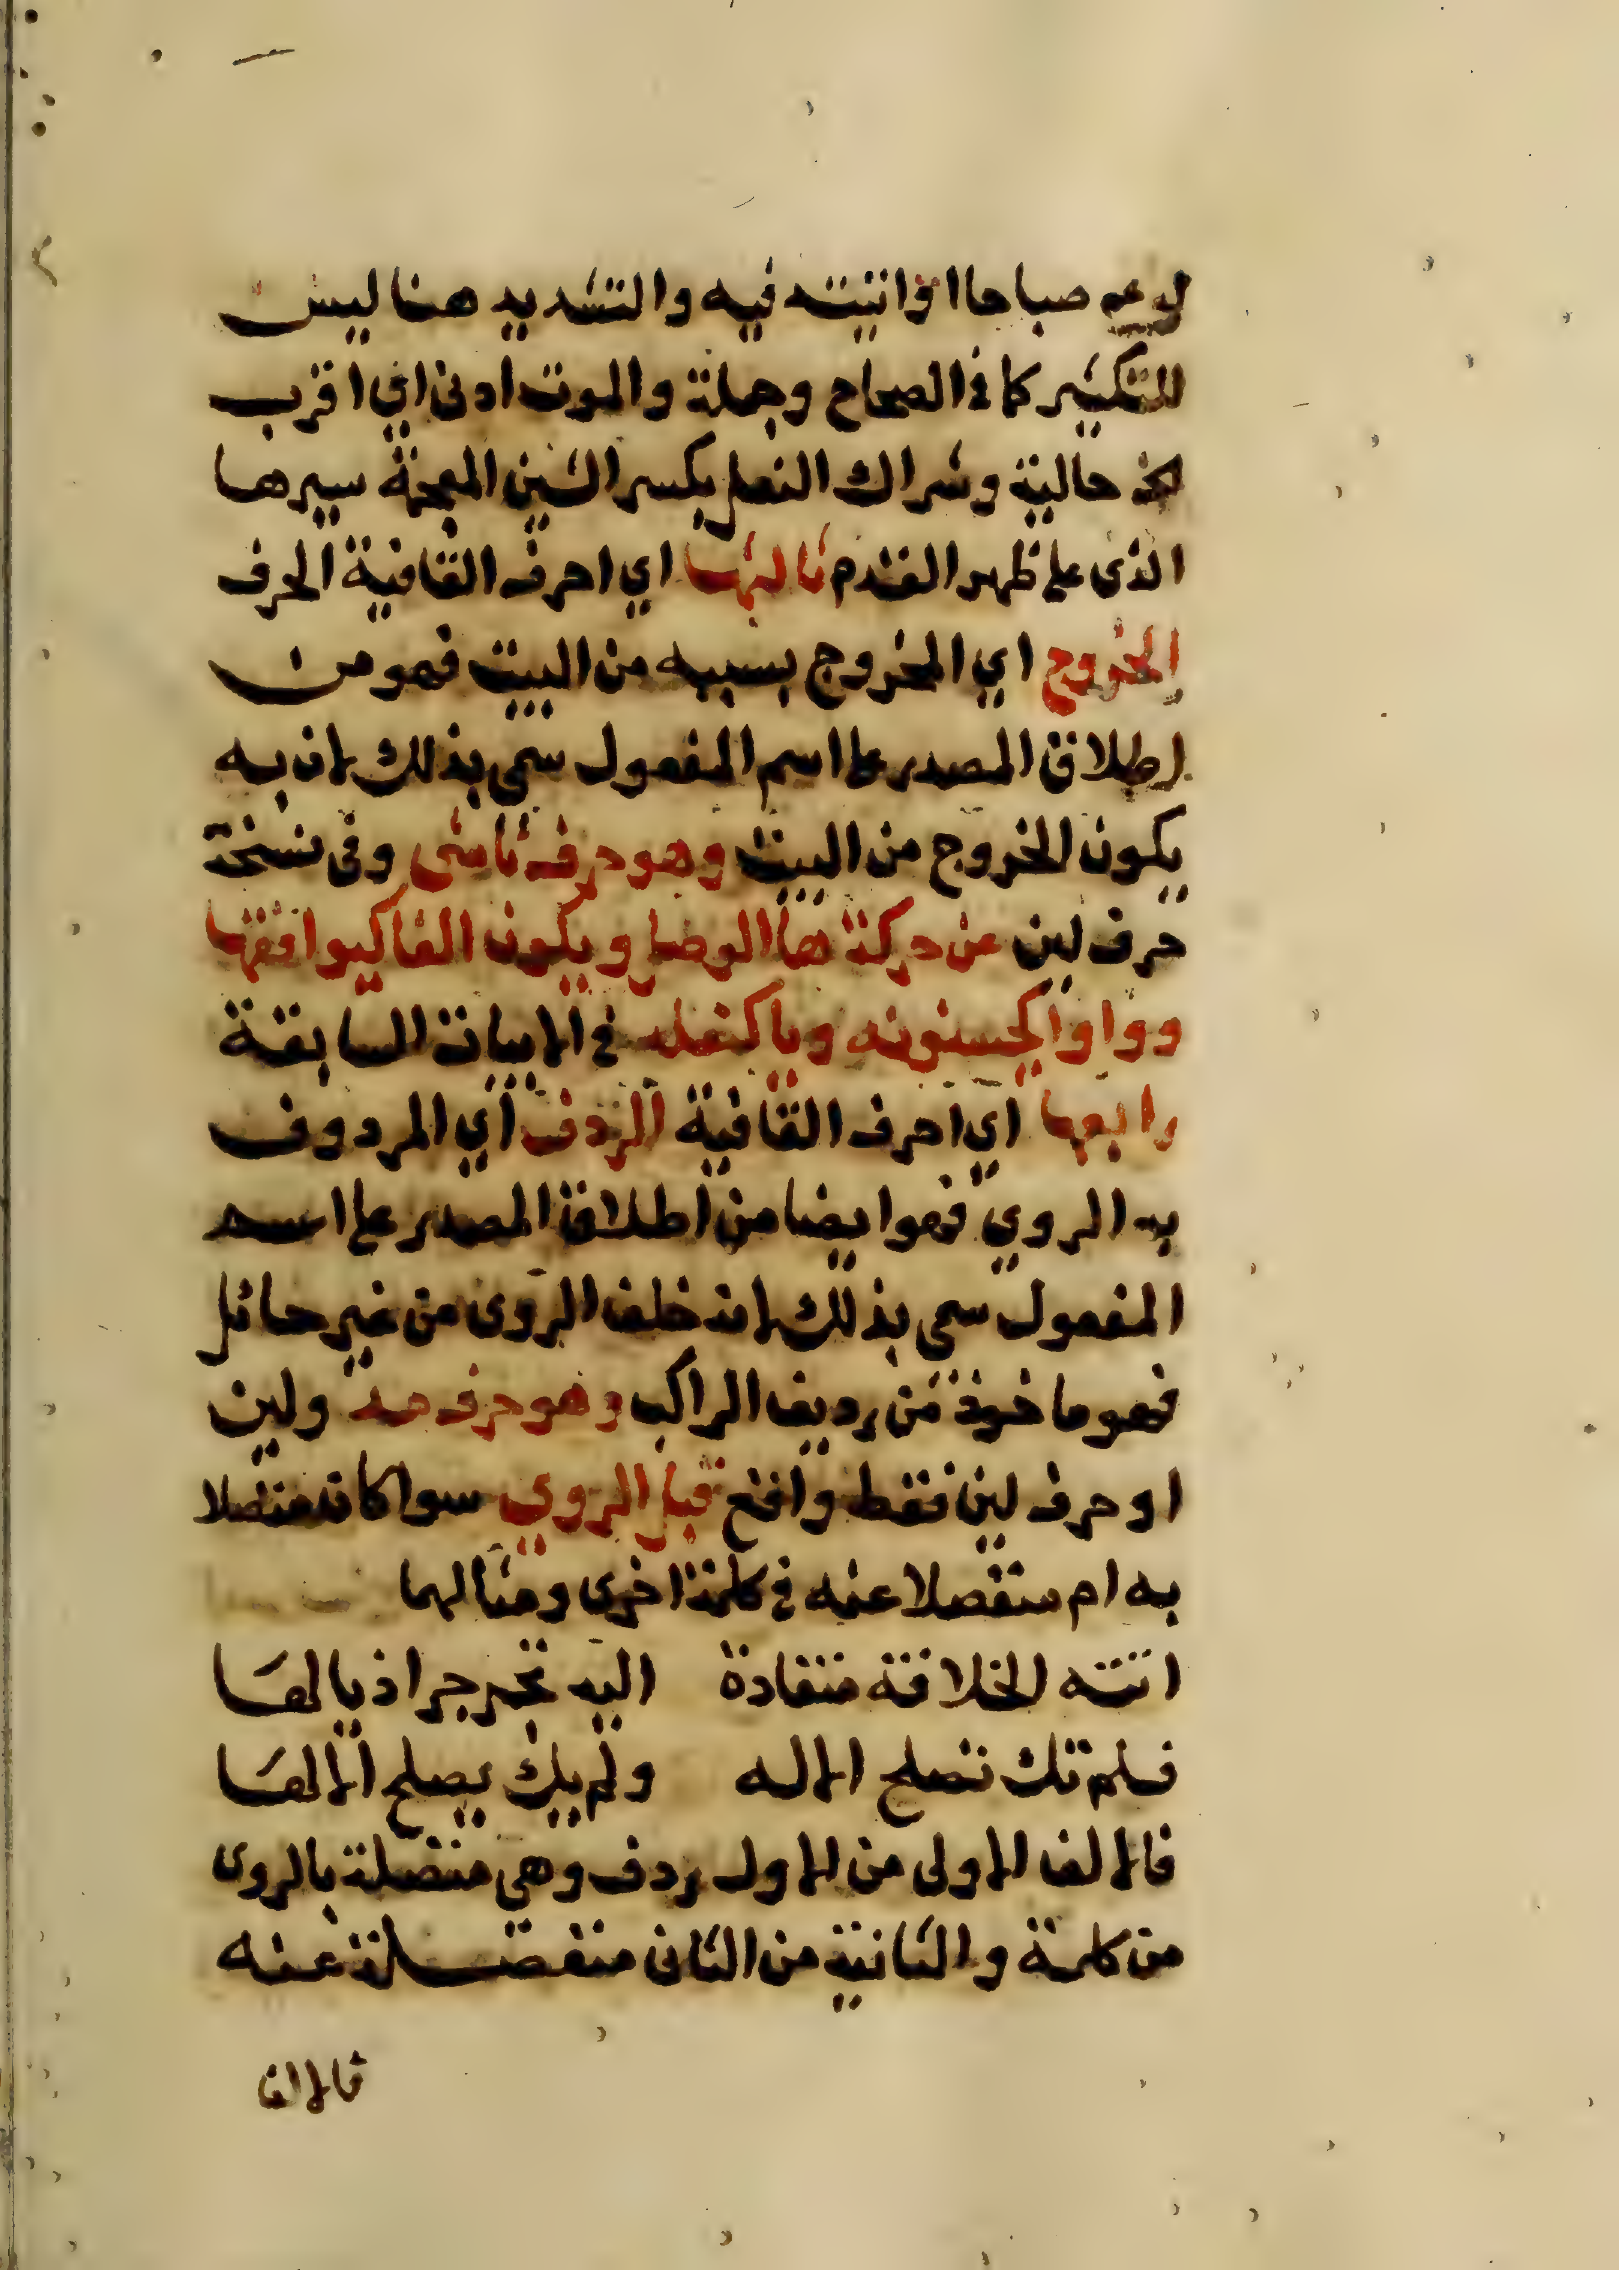 صباحا اواتيته فيه والتشديد هنا ليس
للتكثير كما في الصحاح وجملة والموت ادنى اي اقرب
حالية وشراك النعل بكسر الشين المعجمة سيرها
الذى على ظهر القدم ثالثها اي احرف القافية الحرف
الخروج اي المخروج بسببه من البيت فهو من
اطلاق المصدر على اسم المفعول سمى بذلك لان به
يكون الخروج من البيت وهو حرف ناشى وفى نسخة
حرف لين عن حركة ها الوصل ويكون الفا كيوافقها
وواوا كيحسنونه ويا كنعله في الابيات السابقة
رابعها اي احرف القافية الردف اي المردوف
به الروي فهو ايضا من اطلاق المصدر على اسم
المفعول سمى بذلك لانه خلف الروى من غير حائل
فهو ماخوذ من رديف الراكب وهو حرف مد ولين
او حرف لين فقط واقع قبل الروي سوا كان متصلا
به ام منفصلا عنه في كلمة اخرى ومثالهما
اتته الخلافة منقادة اليه تجرجر اذيالها
فلم تك تصلح الا له ولم يك يصلح الا لها
فالالف الاولى من الاول ردف وهى متصلة بالروى
من كلمة والثانية من الثانى منفصلة عنه
فالالف